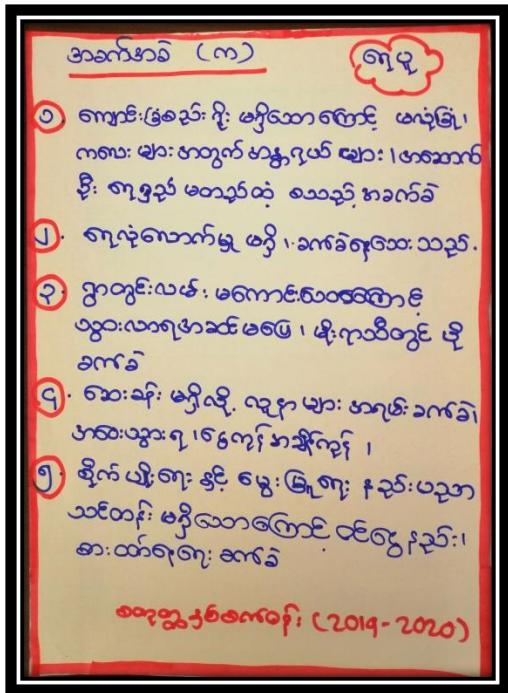 အခက်အခဲ (က)
ရေပူ
၁. ကျောင်းခြံစည်းရိုး မရှိသောကြောင့် မလုံခြုံ၊
ကလေးများအတွက် အန္တရာယ်များ၊ အဆောက်
ဦး ရေရှည် မတည်တံ့ စသည့် အခက်ခဲ
၂. ရေလုံလောက်မှု မရှိ၊ ခက်ခဲနေသေးသည်.
၃. ရွာတွင်းလမ်း မကောင်းသေးကြောင့်
သွားလာရအဆင်မပြေ၊ မိုးရာသီတွင် ပို
ခက်ခဲ
၄. ဆေးခန်း မရှိလို့ လူနာများ အရမ်းခက်ခဲ၊
အဝေးသွားရ၊ ငွေကုန်အချိန်ကုန်၊
၅. စိုက်ပျိုးရေး နှင့် မွေးမြူရေး နည်းပညာ
သင်တန်း မရှိသောကြောင့် ဝင်ငွေနည်း၊
စားဝတ်နေရေး ခက်ခဲ
စတုတ္ထနှစ်စက်ဝန်း (2019-2020)